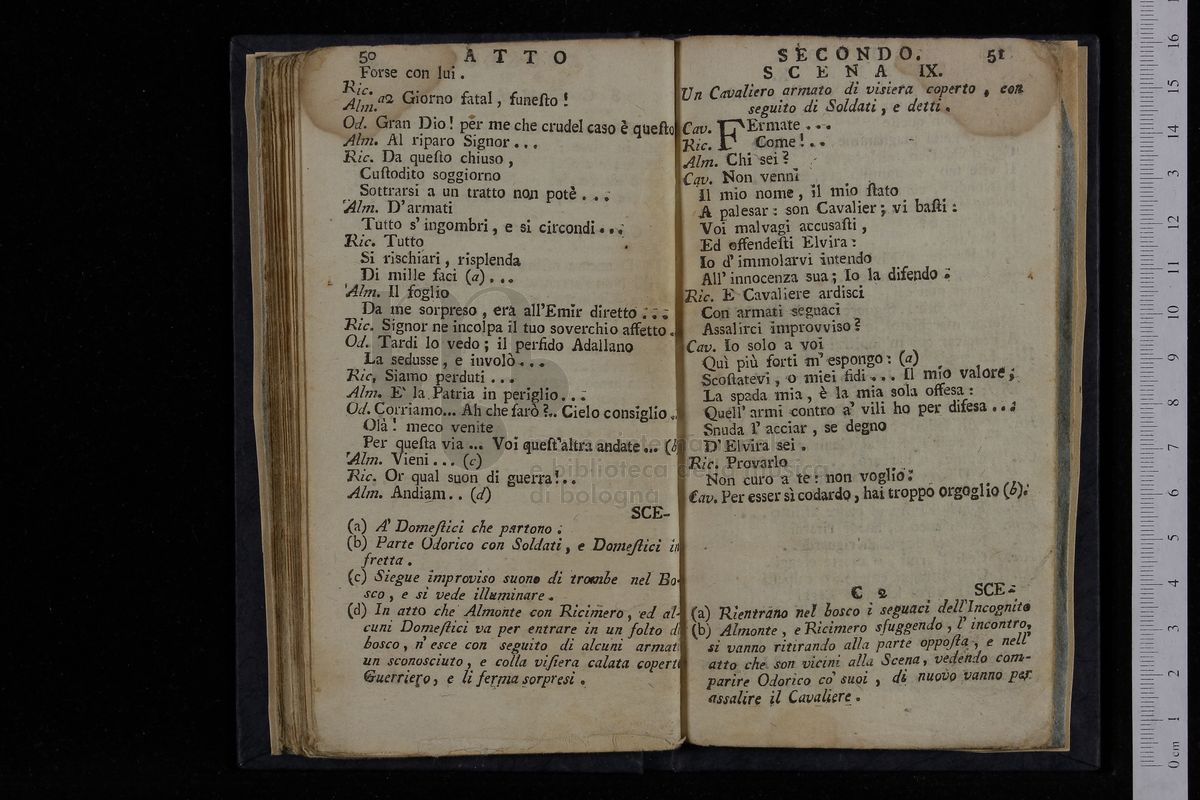 50 ATTO
Forse con lui.
Ric.
Alm. a2 Giorno fatal, funeſto!
Od. Gran Dio! per me che crudel caso è queſto
Alm. Al riparo Signor...
Ric. Da queſto chiuso,
Cuſtodito soggiorno
Sottrarsi a un tratto non potè...
Alm. D'armati
Tutto s'ingombri, e si circondi...
Ric. Tutto
Si rischiari, risplenda
Di mille faci (a)...
Alm. Il foglio
Da me sorpreso, era all'Emir diretto...
Ric. Signor ne incolpa il tuo soverchio affetto.
Od. Tardi lo vedo; il perfido Adallano
La sedusse, e involò...
Ric. Siamo perduti...
Alm. E' la Patria in periglio...
Od. Corriamo... Ah che farò?.. Cielo consiglio.
Olà! meco venite
Per queſta via... Voi queſt'altra andate... (b
Alm. Vieni... (c)
Ric. Or qual suon di guerra!..
Alm. Andiam.. (d)
SCE-
(a) A' Domeſtici che partono.
(b) Parte Odorico con Soldati, e Domeſtici in
fretta.
(c) Siegue improviso suono di trombe nel Bo-
sco, e si vede illuminare.
(d) In atto che Almonte con Ricimero, ed al-
cuni Domeſtici va per entrare in un folto d
bosco, n'esce con seguito di alcuni armat
un sconosciuto, e colla viſiera calata copert
Guerriero, e li ferma sorpresi.
SECONDO. 51
SCENA IX.
Un Cavaliero armato di visiera coperto, con
seguito di Soldati, e detti.
Cav. FErmate...
Ric. Come!..
Alm. Chi sei?
Cav. Non venni
Il mio nome, il mio ſtato
A palesar: son Cavalier; vi baſti:
Voi malvagi accusaſti,
Ed offendeſti Elvira:
Io d'immolarvi intendo
All'innocenza sua; Io la difendo:
Ric. E Cavaliere ardisci
Con armati seguaci
Assalirci improvviso?
Cav. Io solo a voi
Quì più forti m'espongo: (a)
Scoſtatevi, o miei fidi... Il mio valore;
La spada mia, è la mia sola offesa:
Quell'armi contro a' vili ho per difesa...
Snuda l'acciar, se degno
D'Elvira sei.
Ric. Provarlo
Non curo a te: non voglio:
Cav. Per esser sì codardo, hai troppo orgoglio (b).
C 2 SCE-
(a) Rientrano nel bosco i seguaci dell'Incognito
(b) Almonte, e Ricimero sfuggendo, l'incontro,
si vanno ritirando alla parte oppoſta, e nell'
atto che son vicini alla Scena, vedendo com-
parire Odorico co' suoi, di nuovo vanno per
assalire il Cavaliere.
e biblioteca della musica
di bologna
0 cm 1 2 3 4 5 6 7 8 9 10 11 12 13 14 15 16